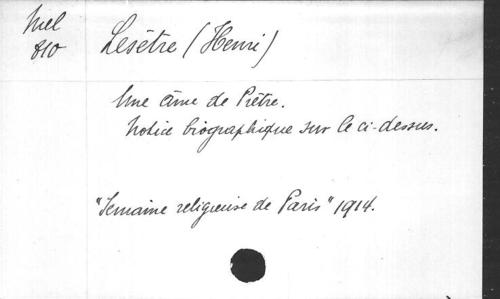 Mel
810
Lesêtre (Henri)
Une âme de Prêtre.
Notice biographique sur le ci-dessus.
"Semaine religieuse de Paris" 1914.